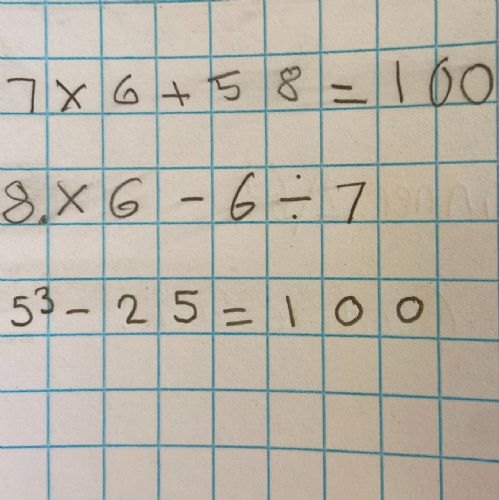 7 × 6 + 58 = 100
8. × 6 - 6 ÷ 7
5³ - 25 = 100